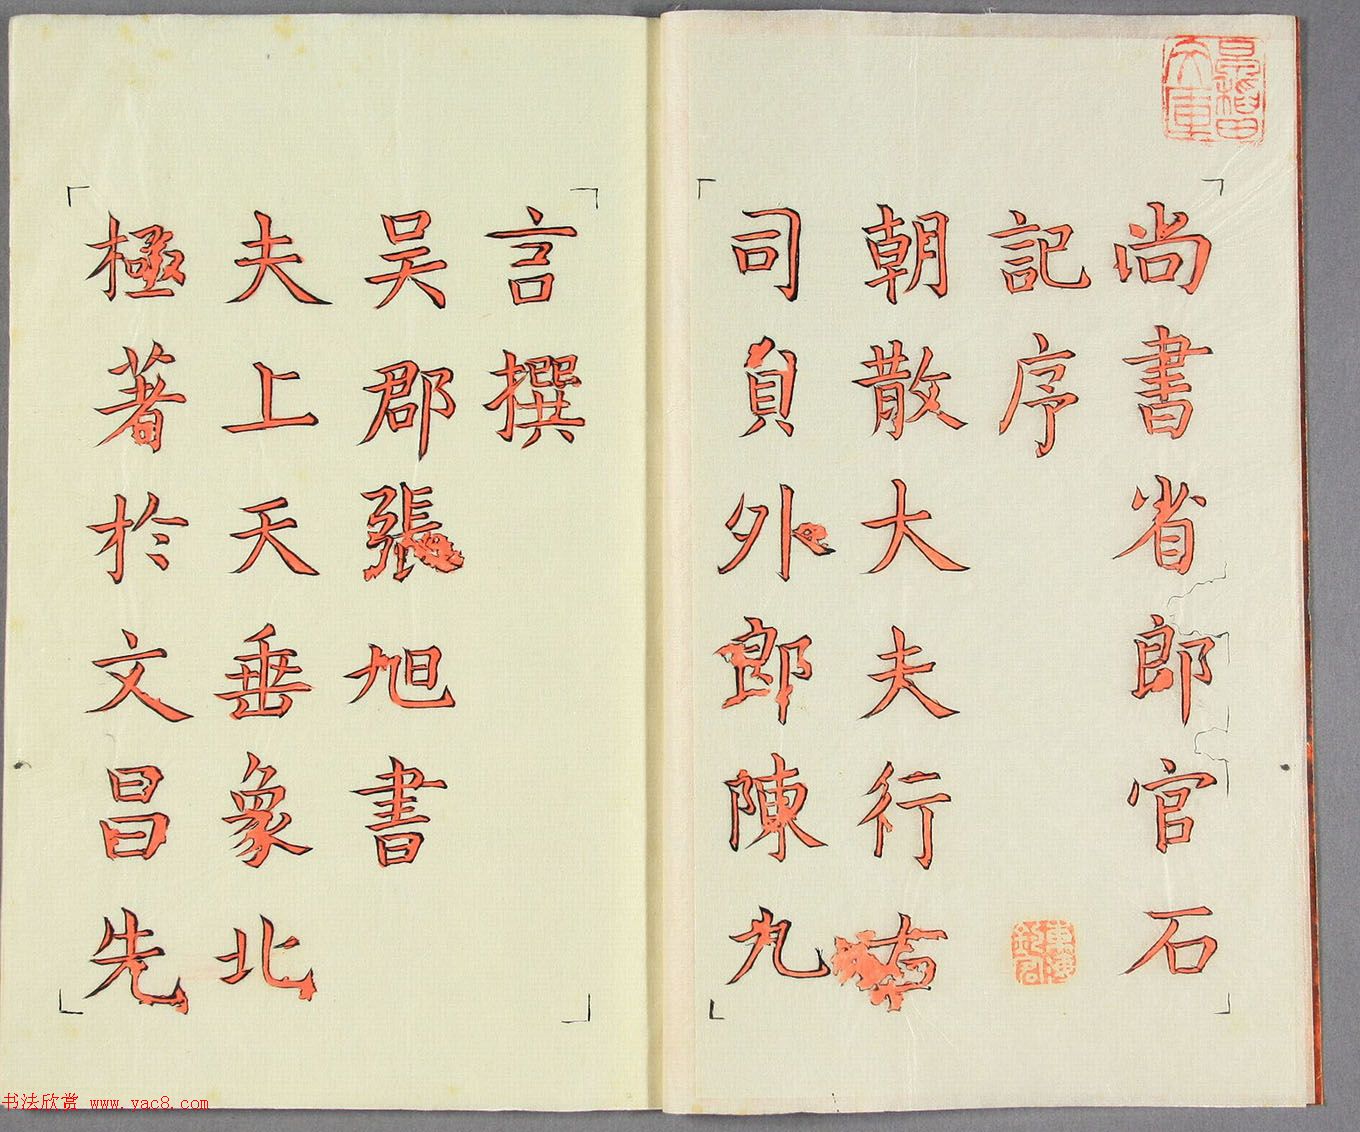 尚書省郎官石
記序
朝散大夫行右
司員外郎陳九
言撰
吴郡張旭書
夫上天垂象北
極著於文昌先
文庫
书法欣赏 www.yac8.com